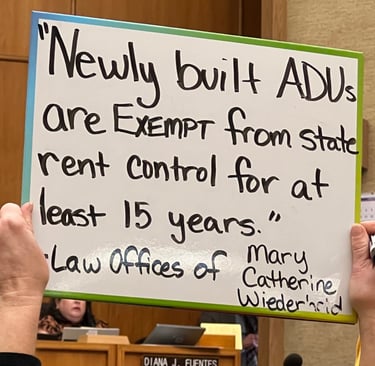 "Newly built ADUs
are EXEMPT from state
rent control for at
least 15 years."
-Law Offices of Mary
Catherine
DIANA J. FUENTES